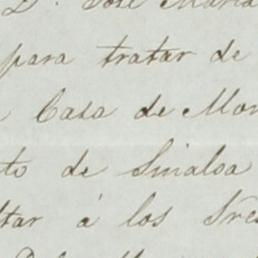 D. José María
para tratar de
Casa de Mon
to de Sinaloa
tar á los Sres